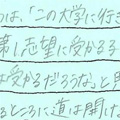 うは、「この大学に行き
第一志望に受かる子
は受かるだろうな」と思
るところに道は開け